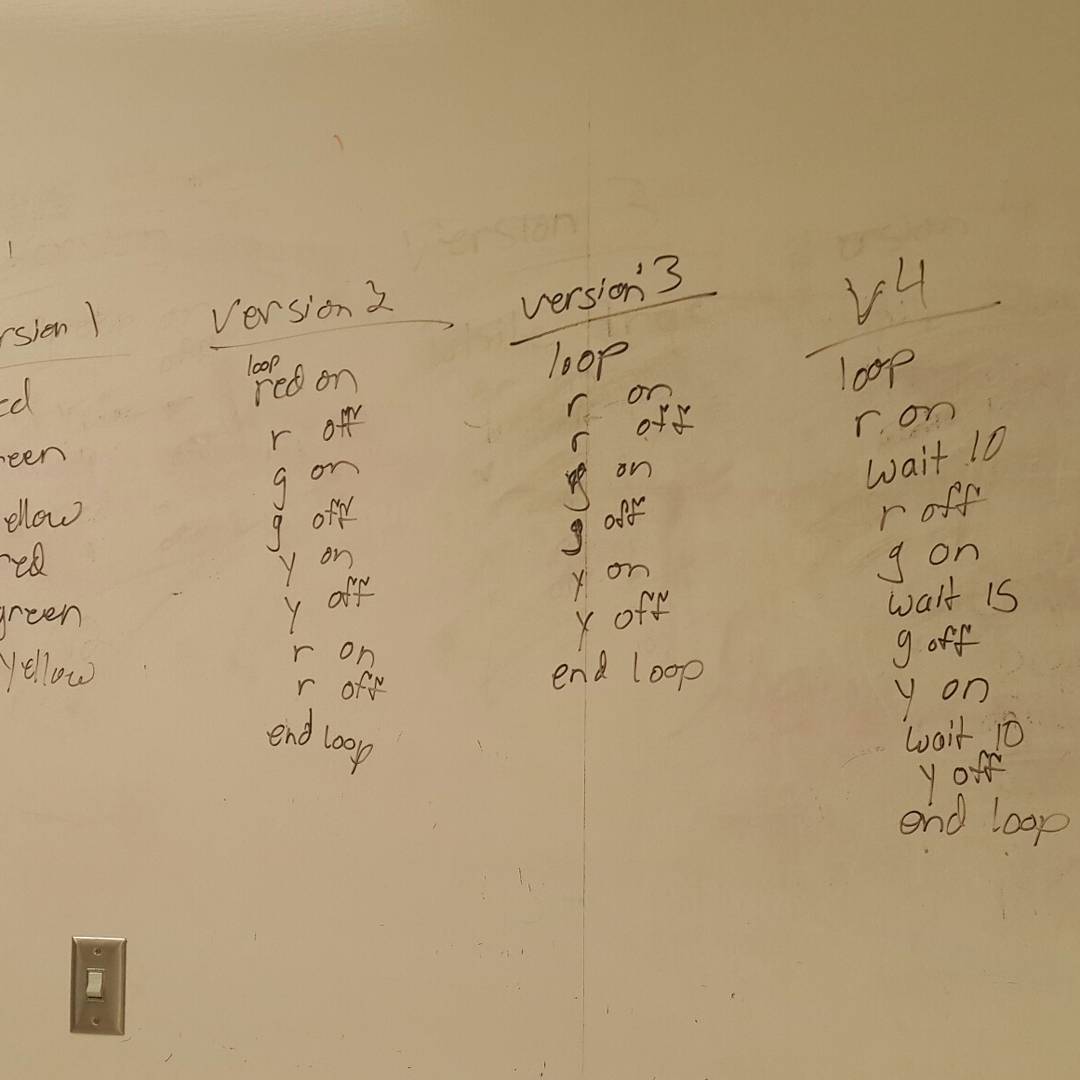 rsion 1
ed
reen
ellow
red
green
yellow
version 2
loop
red on
r off
g on
g off
y on
y off
r on
r off
end loop
version 3
loop
r on
r off
g on
g off
y on
y off
end loop
v4
loop
r on
wait 10
r off
g on
wait 15
g off
y on
wait 10
y off
end loop